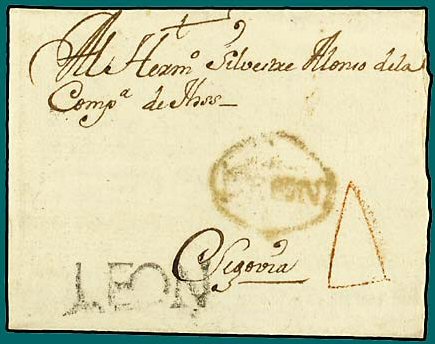 Al Herm.º Silvestre Alonso de la
Comp.ª de Jhss
Segovia
LEON